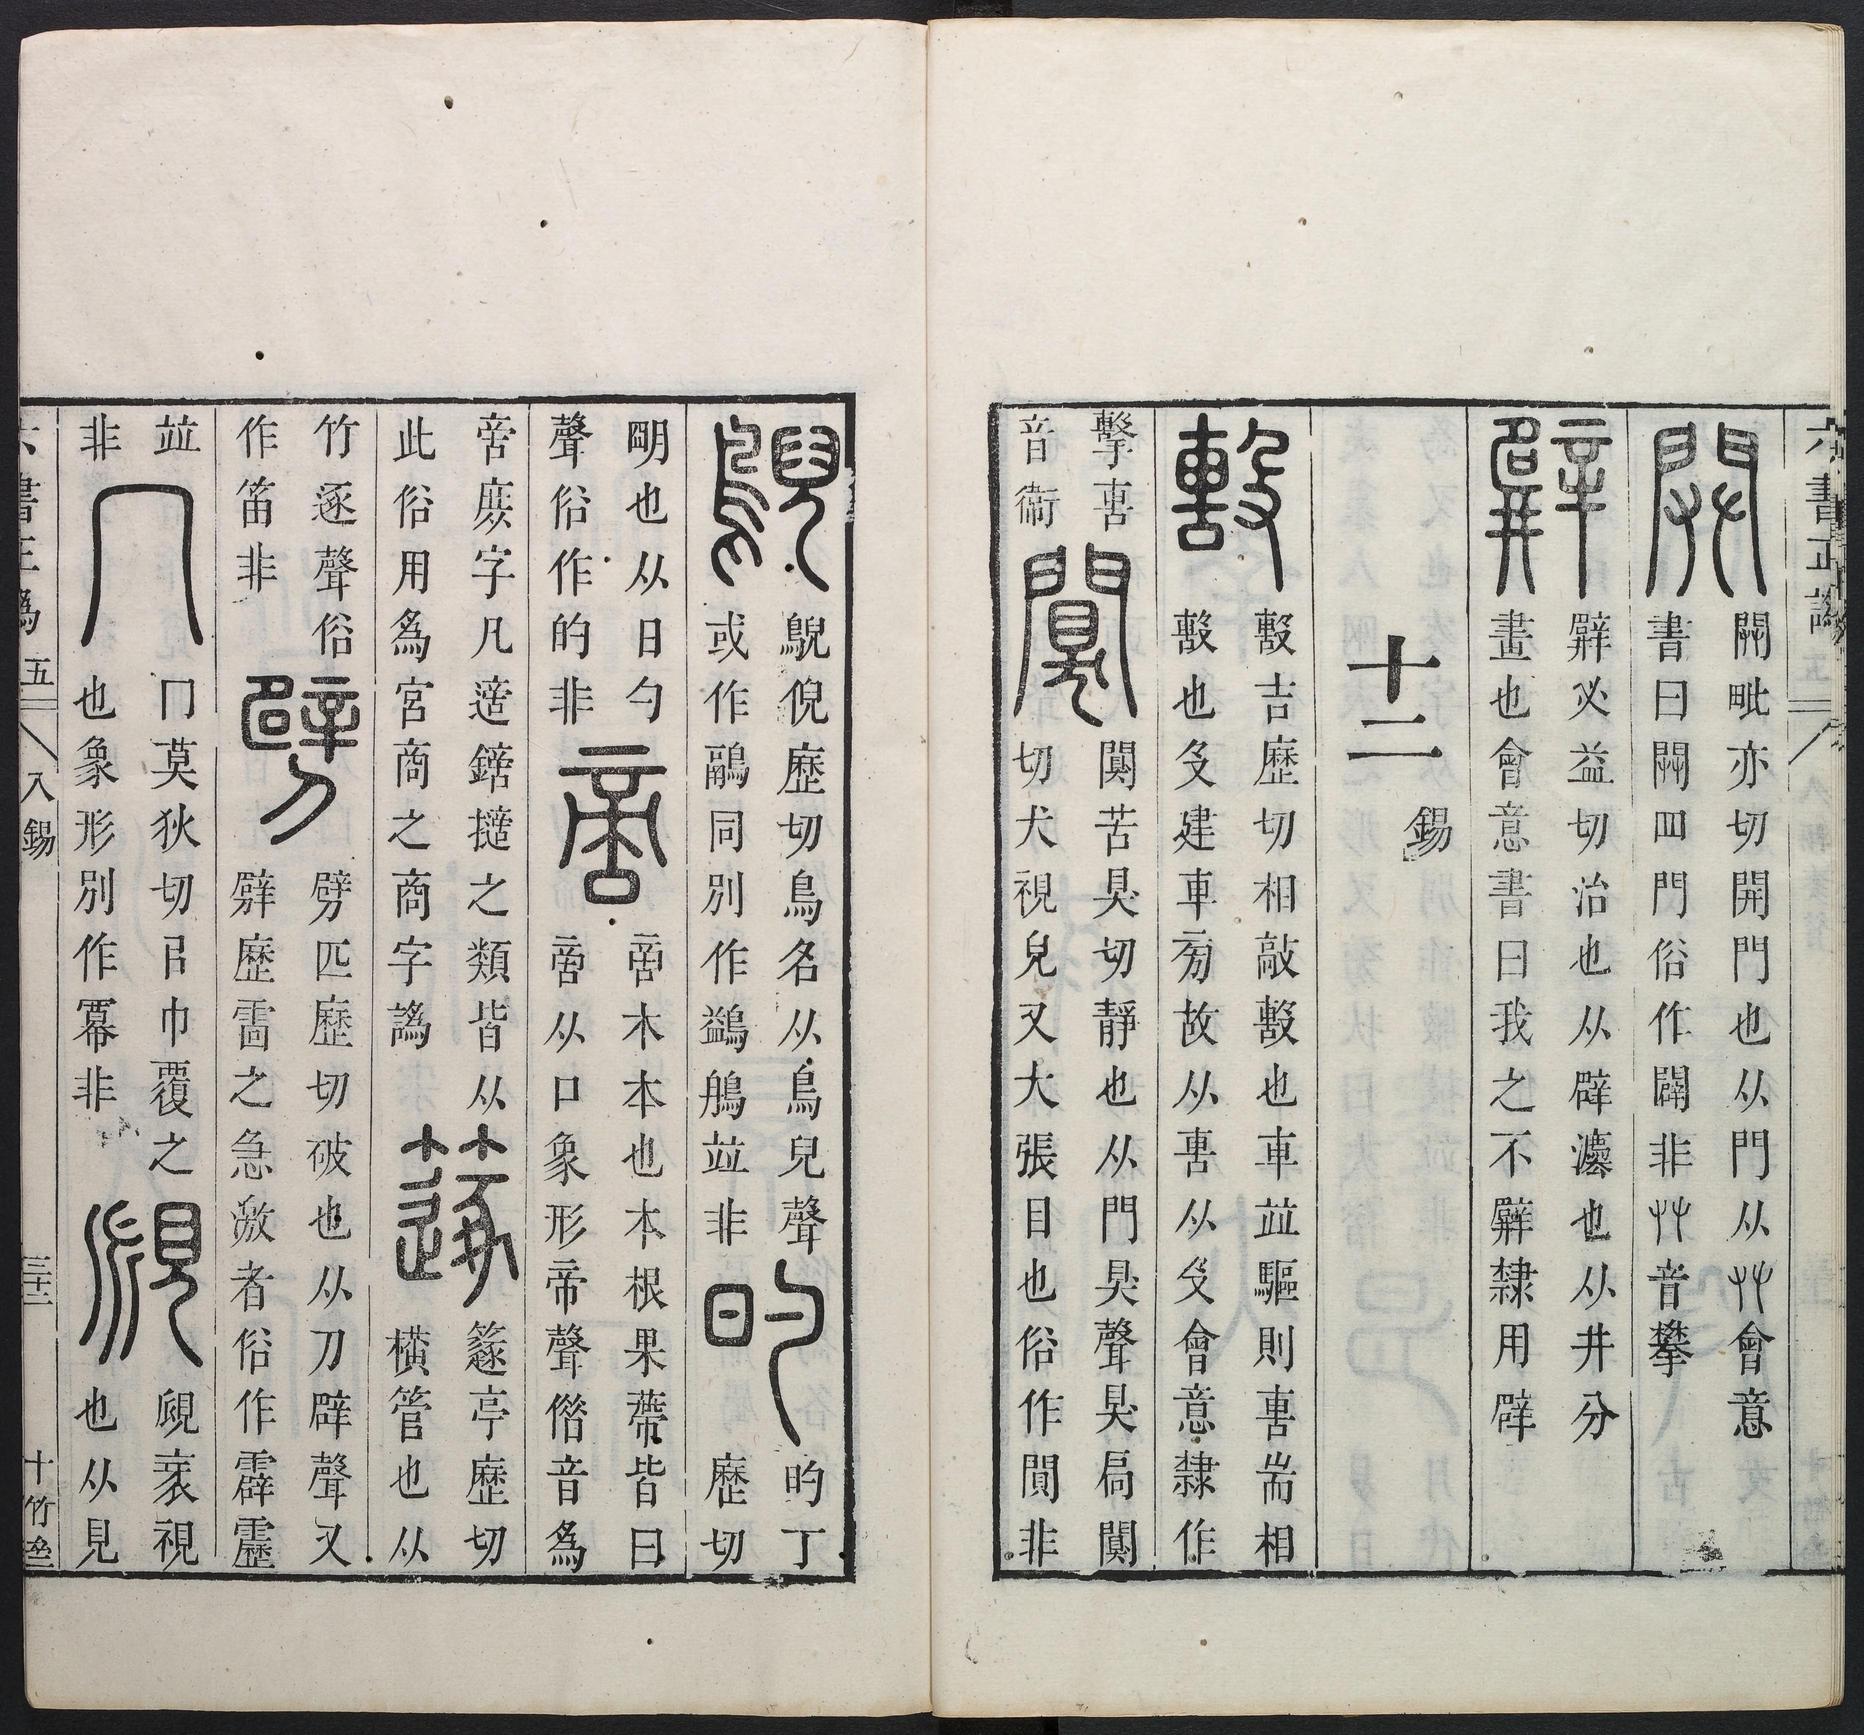 六書正譌
毗亦切開門也从門从𠬜會意
書曰 四門俗作闢非𠬜音攀
𨐨
𨐨必益切治也从辟灋也从井分
畫也會意書曰我之不𨐨隸用辟
十二 錫
毄
毄吉歷切相敲毄也車並驅則軎耑相
毄也殳建車旁故从軎从殳會意隸作
擊軎
音衞
闃
闃苦狊切靜也从門狊聲狊扃闃
切犬視皃又大張目也俗作閴非
鶃
鶃倪歷切鳥名从鳥兒聲
或作鷊同別作鷁鶂並非
旳
旳丁
歷切
明也从日勺
聲俗作的非
啻
啻木本也木根果蔕皆曰
啻从口象形帝聲僭音爲
啻庶字凡適鏑擿之類皆从
此俗用爲宮商之商字譌
篴
篴亭歷切
橫管也从
竹逐聲俗
作笛非
劈
劈匹歷切破也从刀辟聲又
劈歷雷之急激者俗作霹靂
並
非
冂
冂莫狄切㠯巾覆之
也象形別作冪非
覛
覛衺視
也从見
六書正譌 五 入 錫 三十二 十竹齋